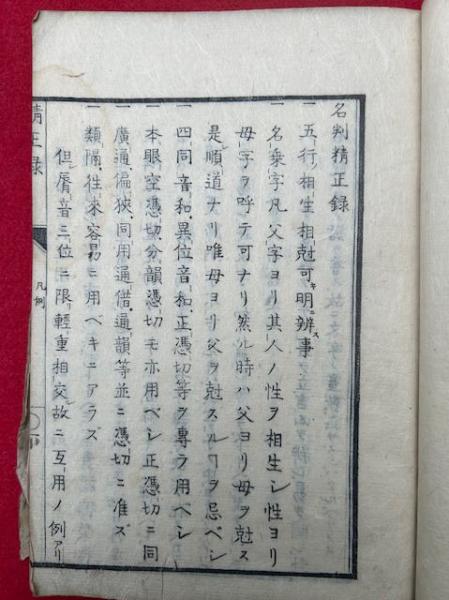 名判精正録
一 五行相生相尅可キ明ニ辨ス事
一 名乗字凡父字ヨリ其人ノ性ヲ相生シ性ヨリ
母字ヲ呼テ可ナリ然ル時ハ父ヨリ母ヲ尅ス
是順道ナリ唯母ヨリ父ヲ尅スルヿヲ忌ベシ
一 四同音和異位音和正憑切等ヲ専ラ用ベシ
一 本眼空憑切分韻憑切モ亦用ベシ正憑切ニ同
一 廣通偏狭同用通借遍韻等並ニ憑切ニ准ズ
一 類隔往来容易ニ用ベキニアラズ
但唇音三位ニ限軽重相交故ニ互用ノ例アリ
精正録
凡例